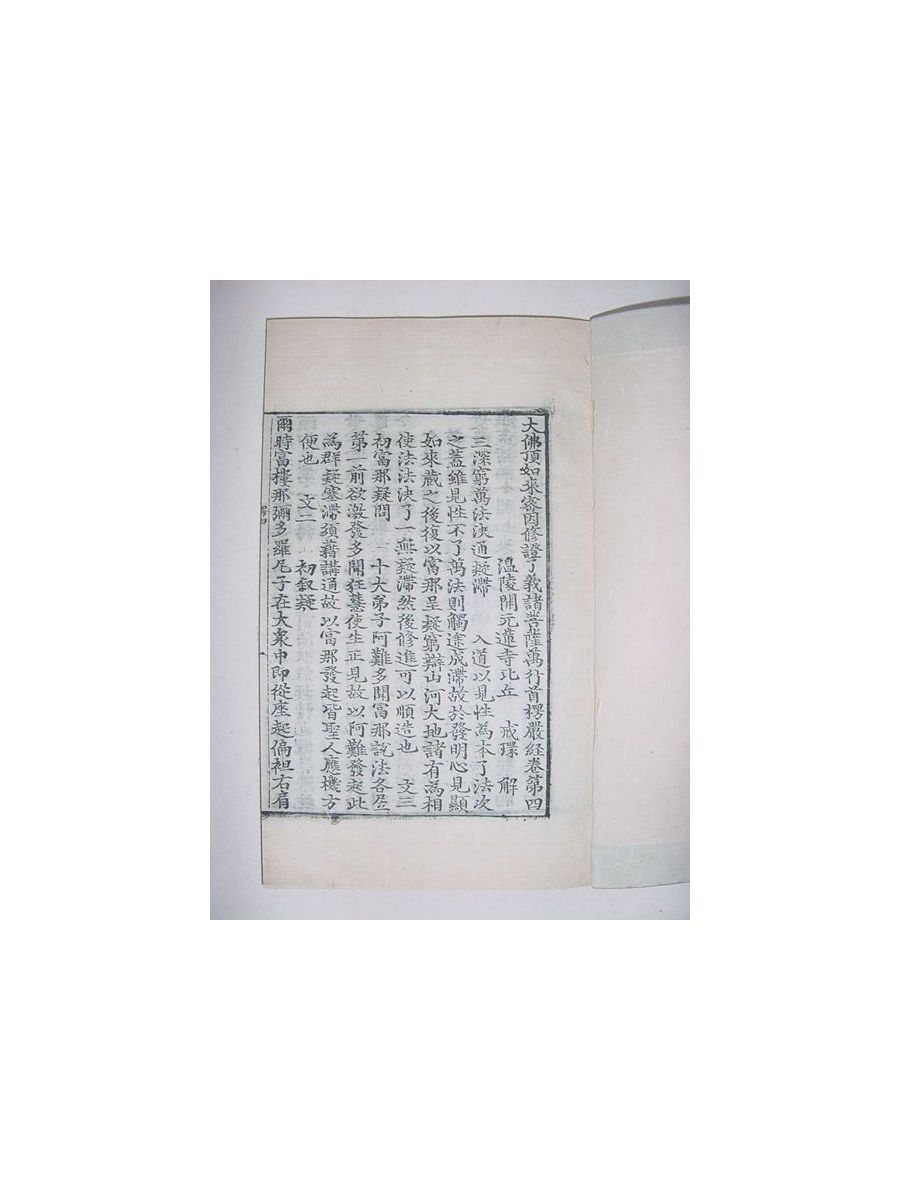 大佛頂如來密因修證了義諸菩薩萬行首楞嚴經卷第四
溫陵開元蓮寺比丘 戒環 解
三深窮萬法決通疑滯 入道以見性為本了法次
之蓋雖見性不了萬法則觸途成滯故於發明心見顯
如來藏之後復以富那呈疑窮辯山河大地諸有為相
使法法決了一無疑滯然後修進可以順造也 文三
初富那疑問 十大弟子阿難多聞富那說法各居
第一前欲激發多聞狂慧使生正見故以阿難發起此
為群疑塞滯須藉講通故以富那發起皆聖人應機方
便也 文二 初叙疑
爾時富樓那彌多羅尼子在大衆中即從座起偏袒右肩